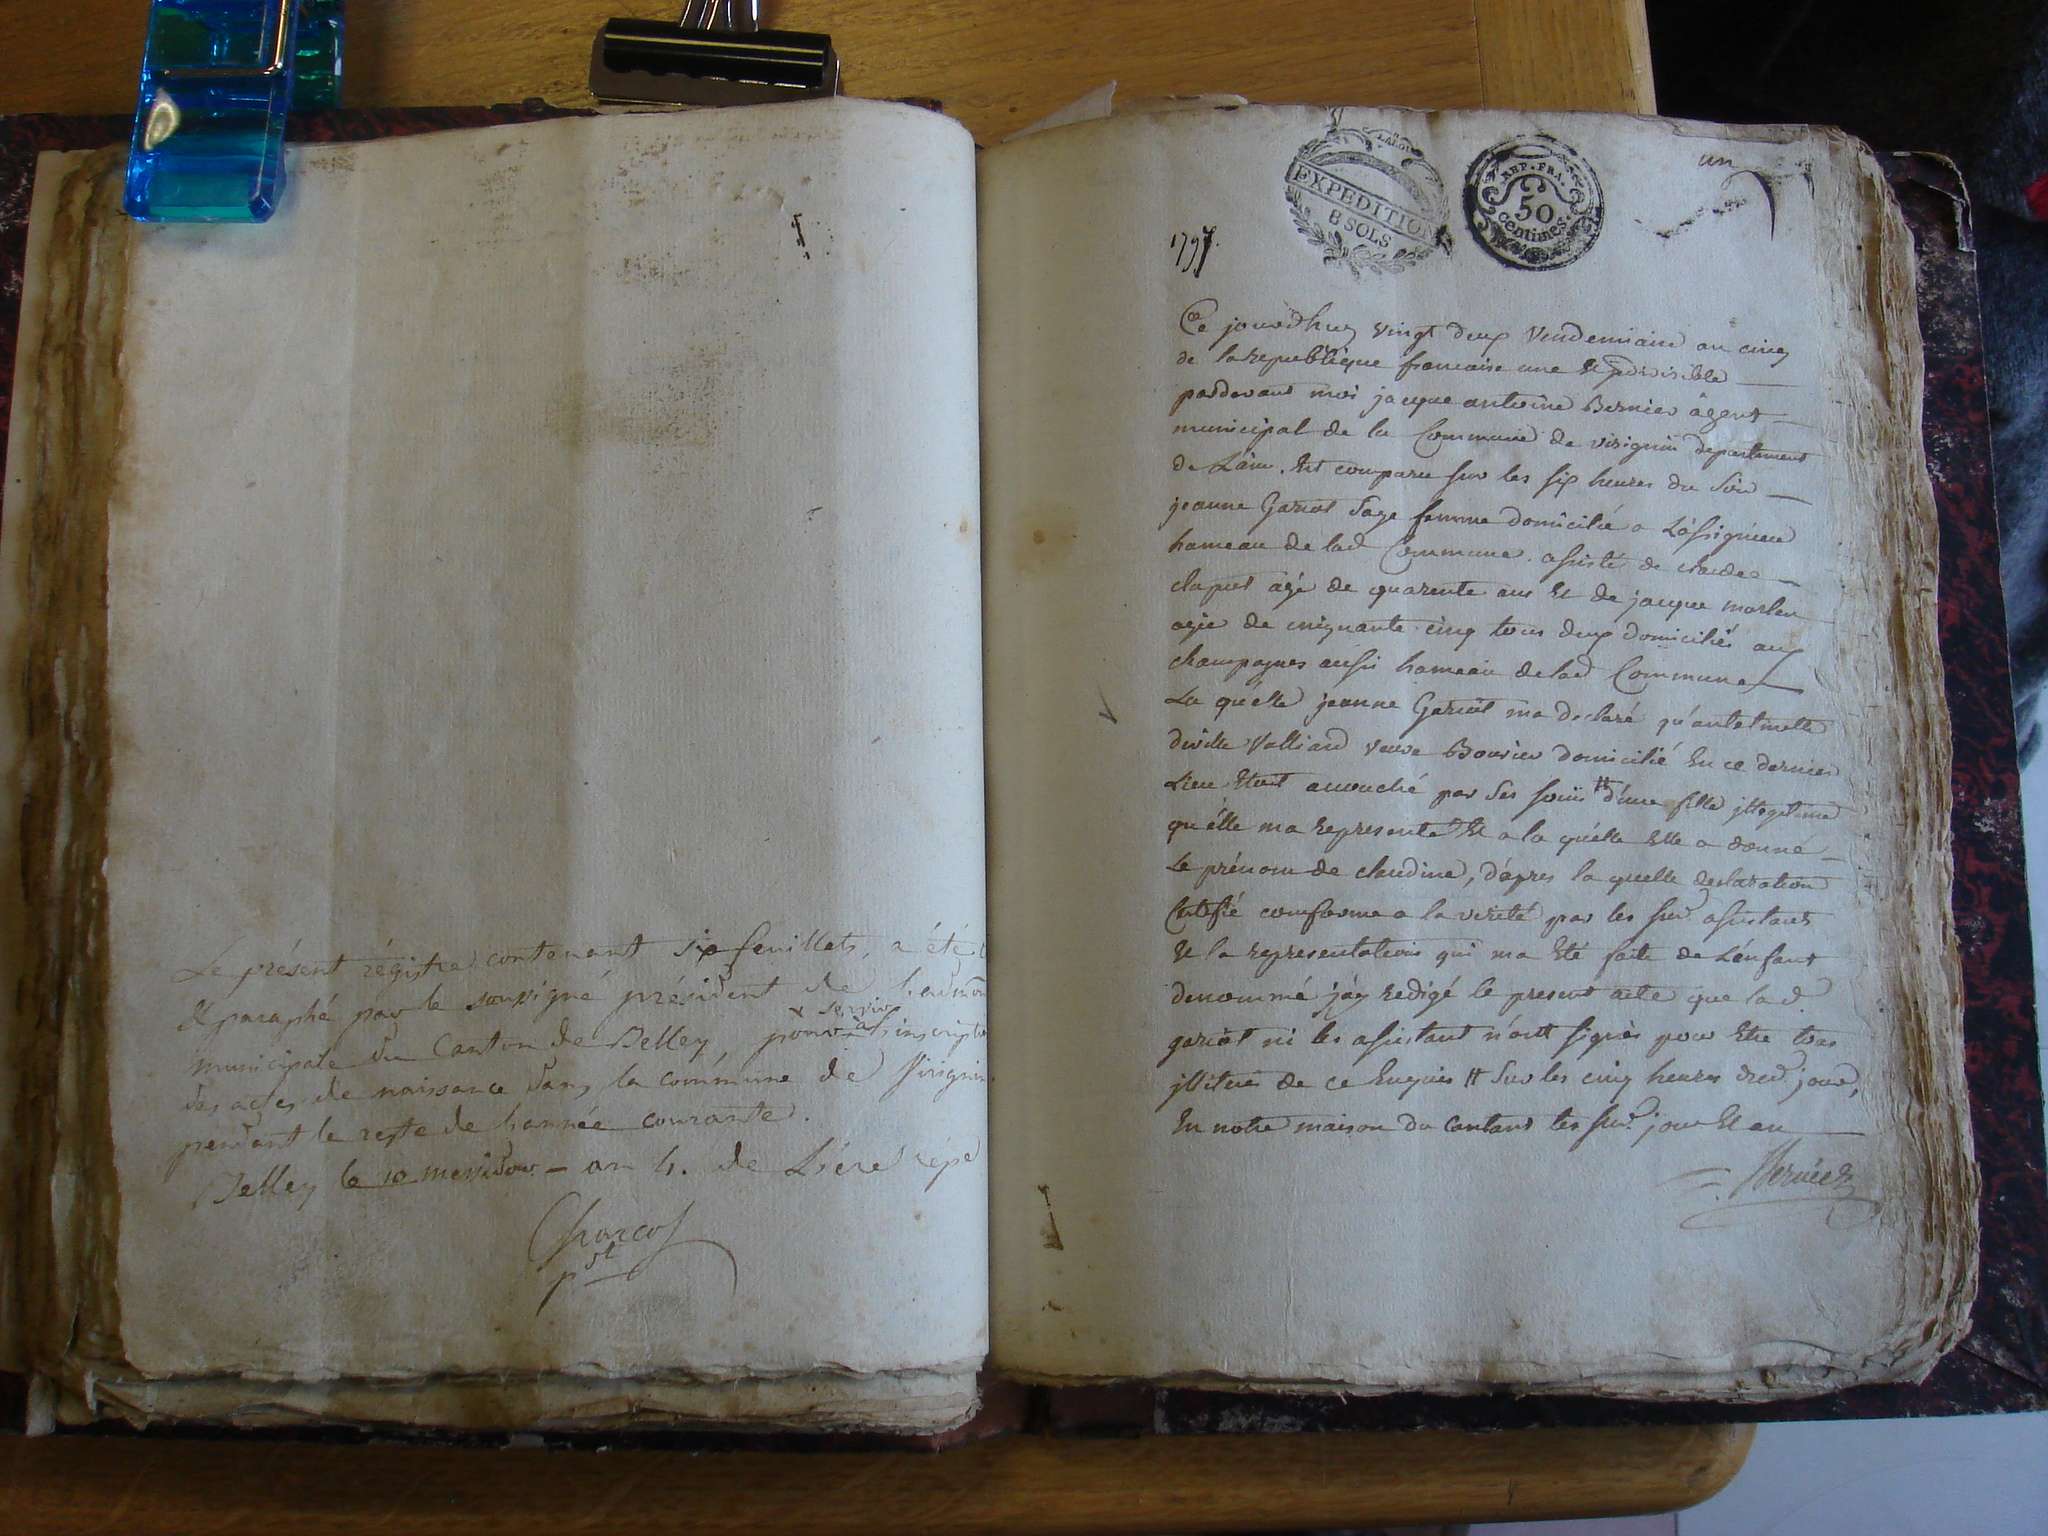 Le présent régistre contenant six feuillets, a été
& paraphé par le soussigné président de
servir
municipale du Canton de Belley, pour à inscription
des actes de naissance dans la commune de Virignin
pendant le reste de l'année courante.
Belley le 10 messidor - an 4. de L'ére répu
Charcot
pdt
un
EXPEDITION
8 SOLS
REP. FRA.
50
centimes.
1797.
Ce jourdhuy vingt deux Vendemiaire an cinq
de la republique francaise une et indivisible
pardevant moi jacque antoine Bernier agent
municipal de la Commune de virignin departement
de L'ain. Est comparu sur les six heures du soir
jeanne Gariot Sage femme domicilié a
hameau de lad Commune. assisté de claude
clapet agé de quarente ans Et de jacque
agée de cinquante cinq tous deux domiciliés aux
champagnes aussi hameau de lad Commune
La quelle jeanne Gariot ma declaré qu'antelmette
Valliand veuve Bouvier domicilié En ce dernier
Lieu Etoit accouché par ses soins # d'une fille jllegitime
qu'elle ma representé Et a la quelle Elle a donné
Le prénom de claudine, d'apres la quelle declaration
Certifié conforme a la verité par les sud assistants
Et la representation qui ma Eté faite de L'enfant
denommé j'ay redigé le present acte que lad
gariot ni les assistant n'ont signés pour Etre tous
jlliterés de ce Enquis # Sur les cinq heures dud jour,
En notre maison du Cantons les sud jour Et an
Bernier